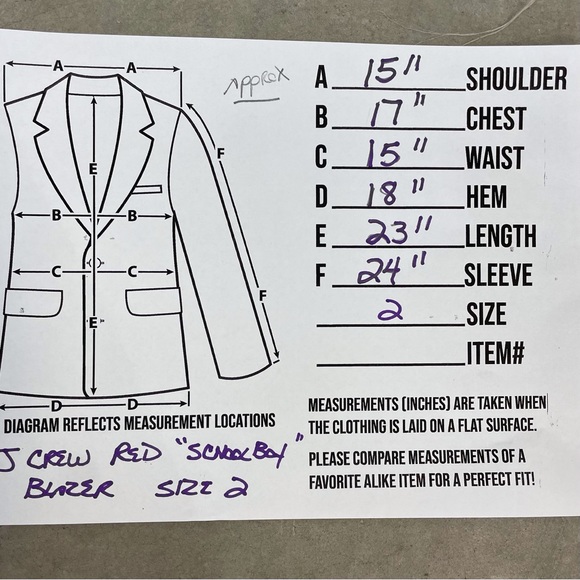 A A
Approx
E
F
B B
C C
E
F
D D
DIAGRAM REFLECTS MEASUREMENT LOCATIONS
J CREW RED "SCHOOLBOY"
BLAZER SIZE 2
A 15" SHOULDER
B 17" CHEST
C 15" WAIST
D 18" HEM
E 23" LENGTH
F 24" SLEEVE
2 SIZE
ITEM#
MEASUREMENTS (INCHES) ARE TAKEN WHEN
THE CLOTHING IS LAID ON A FLAT SURFACE.
PLEASE COMPARE MEASUREMENTS OF A
FAVORITE ALIKE ITEM FOR A PERFECT FIT!